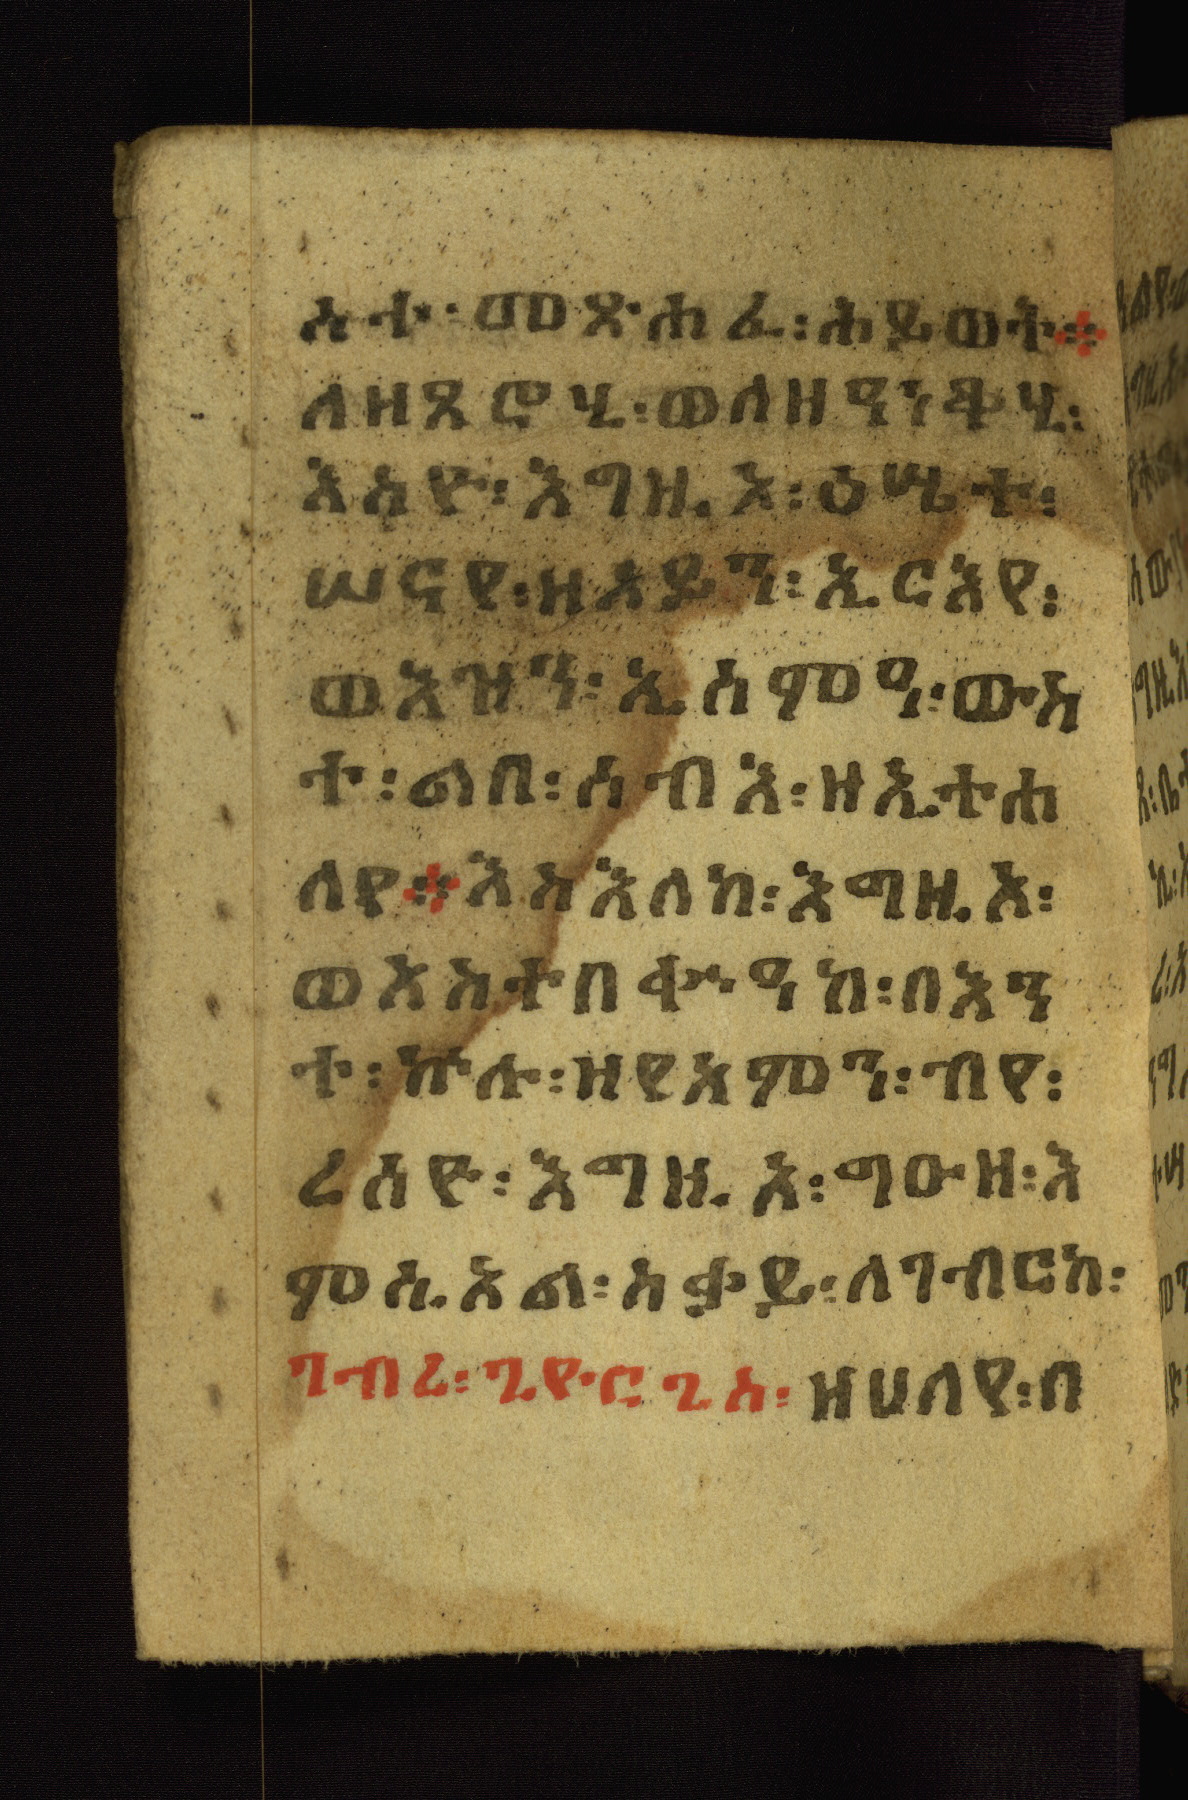 ስተ፡መጽሐፈ፡ሕይወት፨
ለዘጸሮሂ፡ወለዘዓነቆሂ፡
እስዮ፡እግዚአ፡ዕሤተ፡
ሠናየ፡ዘዓይን፡ኢርእየ፡
ወእዝን፡ኢሰምዓ፡ውስ
ተ፡ልበ፡ሰብእ፡ዘኢተሐ
ለየ፨እስእለከ፡እግዚአ፡
ወእስተበቍዓከ፡በእን
ተ፡ኵሉ፡ዘየአምን፡ብየ፡
ረሰዮ፡እግዚአ፡ግዑዘ፡እ
ምሲኦል፡ስቃይ፡ለገብርከ፡
ገብረ፡ጊዮርጊስ፡ዘሀለየ፡በ